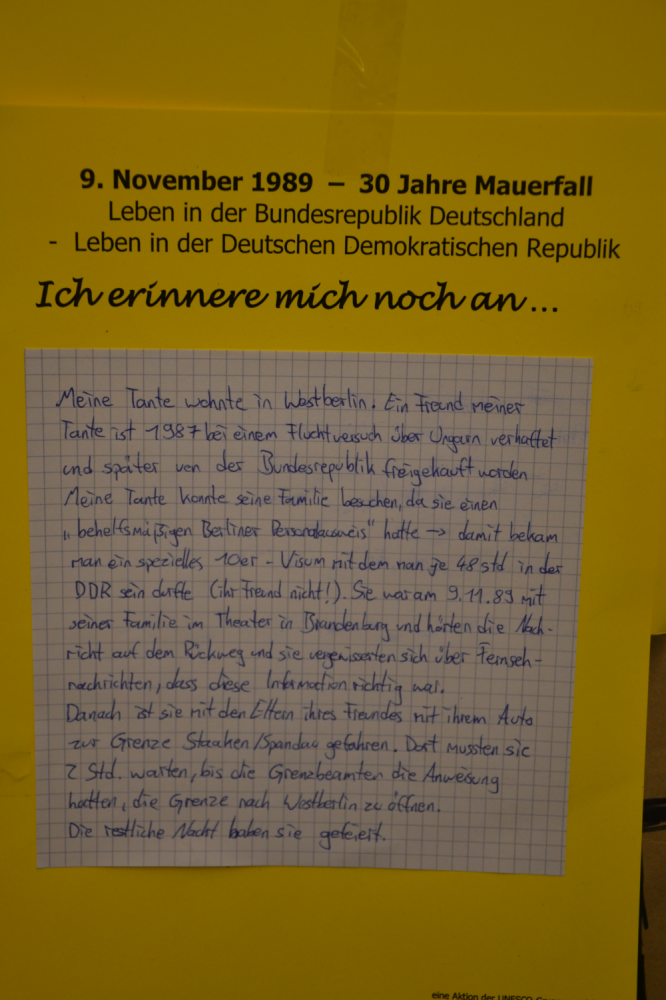 9. November 1989 – 30 Jahre Mauerfall
Leben in der Bundesrepublik Deutschland
- Leben in der Deutschen Demokratischen Republik
Ich erinnere mich noch an...
Meine Tante wohnte in Westberlin. Ein Freund meiner
Tante ist 1987 bei einem Fluchtversuch über Ungarn verhaftet
und später von der Bundesrepublik freigekauft worden
Meine Tante konnte seine Familie besuchen, da sie einen
„behelfsmäßigen Berliner Personalausweis" hatte → damit bekam
man ein spezielles 10er - Visum mit dem man je 48 std in der
DDR sein durfte (ihr Freund nicht!). Sie war am 9.11.89 mit
seiner Familie im Theater in Brandenburg und hörten die Nach-
richt auf dem Rückweg und sie vergewisserten sich über Fernseh-
nachrichten, dass diese Information richtig war.
Danach ist sie mit den Eltern ihres Freundes mit ihrem Auto
zur Grenze Staaken/Spandau gefahren. Dort mussten sie
2 Std. warten, bis die Grenzbeamten die Anweisung
hatten, die Grenze nach Westberlin zu öffnen.
Die restliche Nacht haben sie gefeiert.
eine Aktion der UNESCO